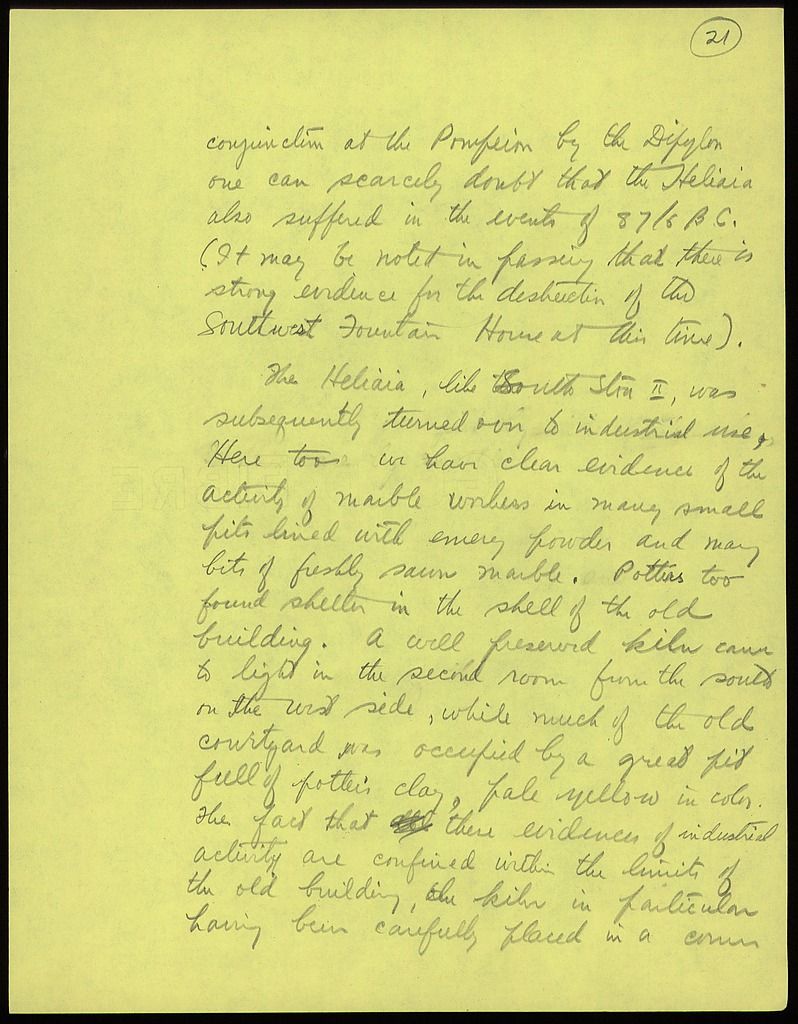 21
conjunction at the Pompeion by the Dipylon
one can scarcely doubt that the Heliaia
also suffered in the events of 87/6 B C.
(It may be noted in passing that there is
strong evidence for the destruction of the
Southwest Fountain House at this time).
The Heliaia, like South Stoa II, was
subsequently turned over to industrial use.
Here too we have clear evidence of the
activity of marble workers in many small
pits lined with emery powder and many
bits of freshly sawn marble. Potters too
found shelter in the shell of the old
building. A well preserved kiln came
to light in the second room from the south
on the west side, while much of the old
courtyard was occupied by a great pit
full of potter's clay, pale yellow in color.
The fact that these evidences of industrial
activity are confined within the limits of
the old building, the kiln in particular
having been carefully placed in a corner